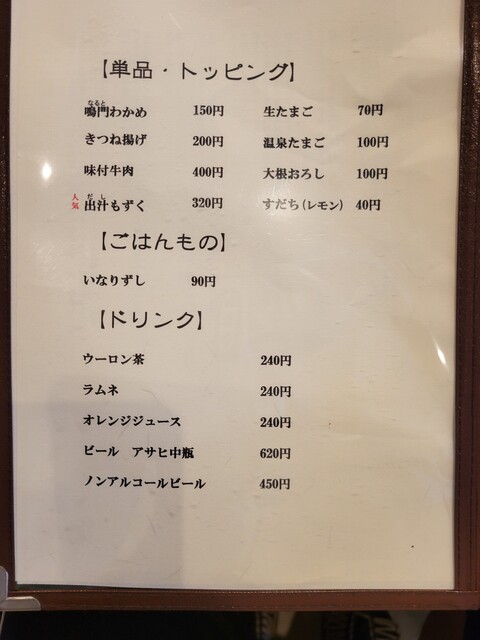 【単品・トッピング】
なると
鳴門わかめ 150円 生たまご 70円
きつね揚げ 200円 温泉たまご 100円
味付牛肉 400円 大根おろし 100円
だし
人気 出汁もずく 320円 すだち(レモン) 40円
【ごはんもの】
いなりずし 90円
【ドリンク】
ウーロン茶 240円
ラムネ 240円
オレンジジュース 240円
ビール アサヒ中瓶 620円
ノンアルコールビール 450円